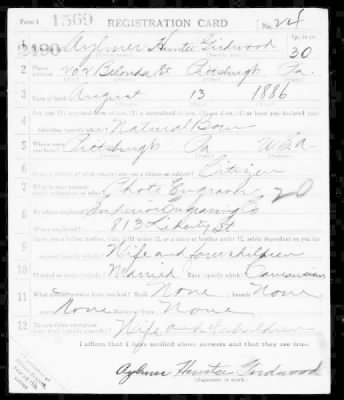 Form 1 1569 REGISTRATION CARD No. 24
3190
1 Aylmer Hunter Girdwood 30
2 Pittsburgh Pa.
3 Date of birth August 13 1886
4 Are you (1) a natural born citizen, (2) a naturalized citizen, (3) an alien, (4) or have you declared your intention (specify which)? Natural Born
5 Where were you born? Pittsburgh Pa U.S.A.
6 If not a citizen, of what country are you a citizen or subject? Citizen
7 What is your present trade, occupation, or office? Photo Engraver 20
8 By whom employed? Superior Engraving Co
Where employed? 813 Liberty St
9 Have you a father, mother, wife, child under 12, or a sister or brother under 12, solely dependent on you for support (specify which)? Wife and four children
10 Married or single (which)? Married Race (specify which)? Caucasian
11 What military service have you had? Rank None branch None
years None Nation or State None
12 Do you claim exemption from draft (specify grounds)? Wife and 4 children
I affirm that I have verified above answers and that they are true.
Aylmer Hunter Girdwood
(Signature or mark)